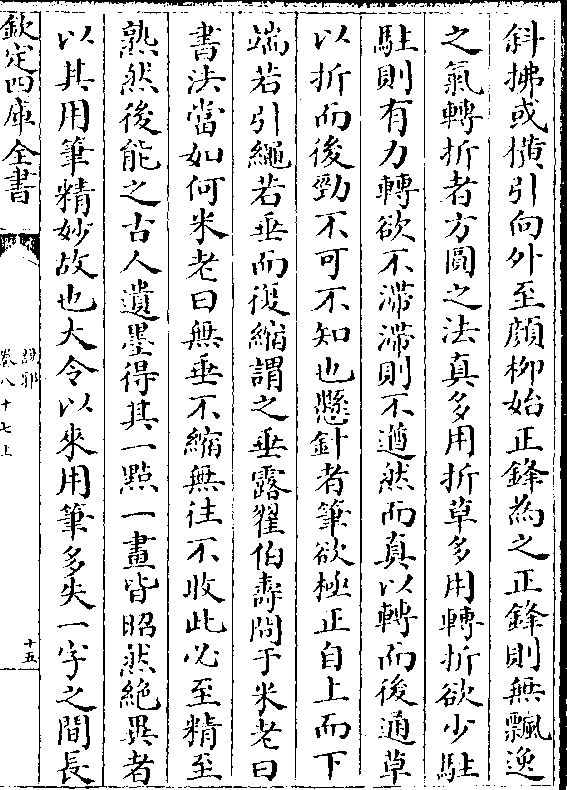 斜拂或横引向外至顔柳始正鋒為之正鋒則無飄逸
之氣轉折者方圓之法真多用折草多用轉折欲少駐
駐則有力轉欲不滯滯則不遒然而真以轉而後遒草
以折而後勁不可不知也懸針者筆欲極正自上而下
端若引繩若垂而復縮謂之垂露翟伯壽問于米老曰
書法當如何米老曰無垂不縮無往不收此必至精至
熟然後能之古人遺墨得其一點一畫皆昭然絶異者
以其用筆精妙故也大令以來用筆多失一字之間長
欽定四庫全書
說郛
卷八十七上
十五